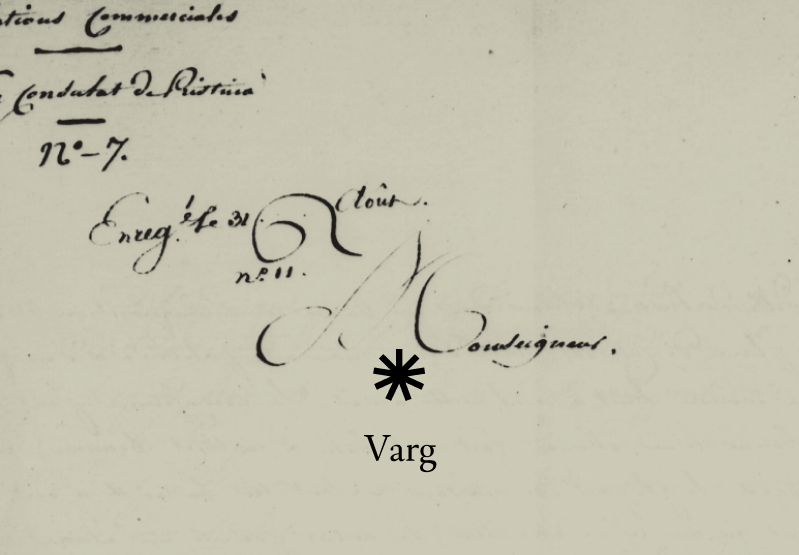 ations Commerciales
Consulat de Pristina
Nº–7.
Enreg.é le 31 Août.
nº 11.
Monseigneur.
Varg